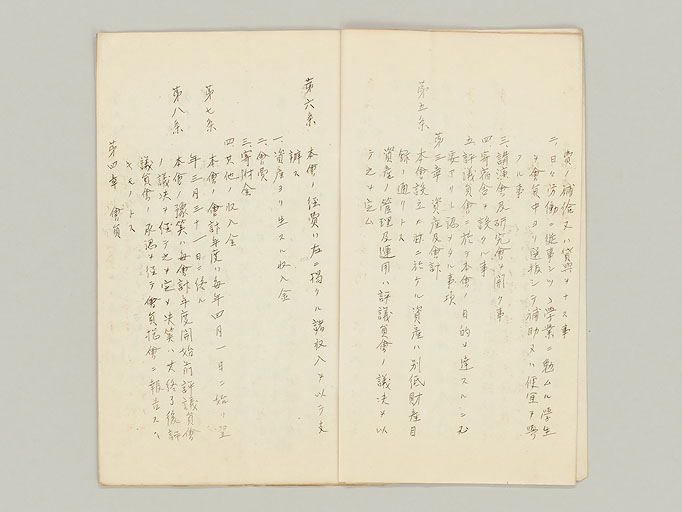 費ノ補給又ハ貸與ヲナス事
二、日々労働ニ從事シツヽ學業ニ勉ムル學生
ヲ會員中ヨリ選拔シテ補助又ハ便宜ヲ與
フル事
三、講演會及研究會ヲ開ク事
四、寄宿舎ヲ設クル事
五、評議員會ニ於テ本會ノ目的ヲ達スルニ必
要ナリト認メタル事項
第三章 資産及會計
第五条
本會設立ノ時ニ於ケル資産ハ別低財産目
録ノ通リトス
資産ノ管理及運用ハ評議員會ノ議決ヲ以
テ之ヲ定ム
第六条
本會ノ經費ハ左ニ掲クル諸収入ヲ以テ支
辨ス
一、資産ヨリ生スル収入金
二、會費
三、寄附金
四、其他ノ収入金
第七条
本會ノ會計年度ハ毎年四月一日ニ始リ翌
年三月三十一日ニ終ル
第八条
本會ノ豫算ハ毎會計年度開始前評議員會
ノ議決ヲ経テ之ヲ定メ決算ハ終了後評
議員會ノ承認ヲ経テ會員總會ニ報告スヘ
キモノトス
第四章 會員